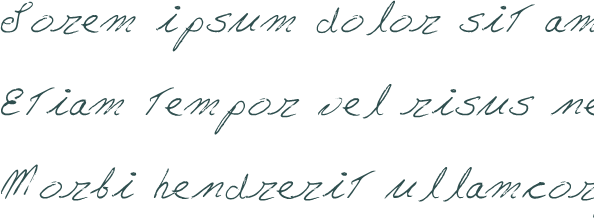 Lorem ipsum dolor sit am
Etiam tempor vel risus ne
Morbi hendrerit ullamcor